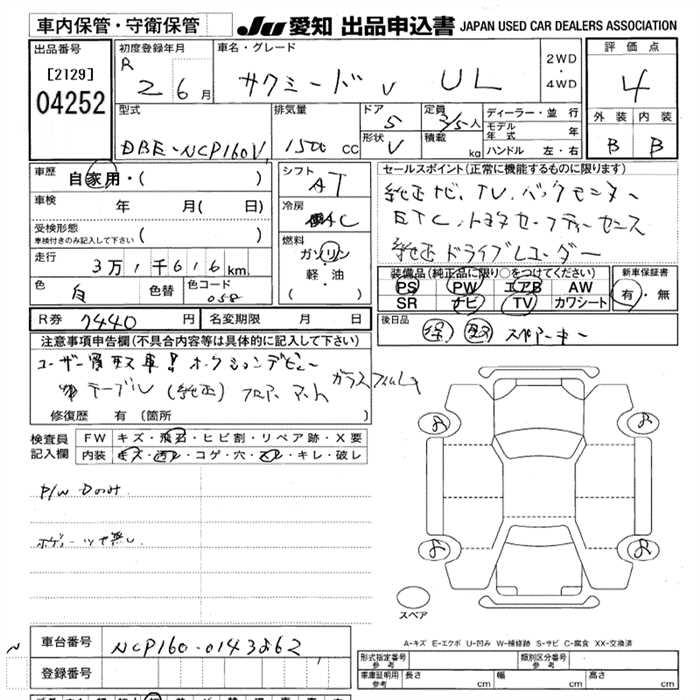 車内保管・守衛保管
JU 愛知 出品申込書 JAPAN USED CAR DEALERS ASSOCIATION
出品番号
[2129]
04252
初度登録年月
R 2 6月
車名・グレード
サクシード V UL
2WD
・
4WD
評価点
4
外装 内装
B B
型式
DBE-NCP160V
排気量
1500 CC
ドア
5
形状
V
定員
2/5人
積載
kg
ディーラー・並行
モデル年式 年
ハンドル 左・右
車歴
自家用・( )
車検 年 月( 日)
受検形態
車検付きのみ記入して下さい ( )
走行
3万1千616km
色
白
色替
色コード
058
シフト
AT
冷房
AC
燃料
ガソリン
・
軽・油
( )
セールスポイント(正常に機能するものに限ります)
純正ナビ、TV、バックモニター
ETC、トヨタセーフティーセンス
純正ドライブレコーダー
装備品(純正品に限り○をつけてください)
PS PW エアB AW
SR ナビ TV カワシート
新車保証書
有・無
R券 7440 円 名変期限 月 日
後日品
保 取 スペアーキー
注意事項申告欄(不具合内容等は具体的に記入して下さい)
ユーザー買取車!オークションデビュー
テーブル(純正)フロアーマット ガラスフィルム
修復歴 有(箇所 )
検査員記入欄
FW キズ・飛石・ヒビ割・リペア跡・X要
内装 キズ・汚れ・コゲ・穴・スレ・キレ・破レ
P/W Door
ボディーツヤ無し
スペア
A-キズ E-エクボ U-凹み W-補修跡 S-サビ C-腐食 XX-交換済
車台番号
NCP160-0143862
登録番号
形式指定番号 参考
類別区分番号 参考
車庫証明用 参考 長さ cm 幅 cm 高さ cm